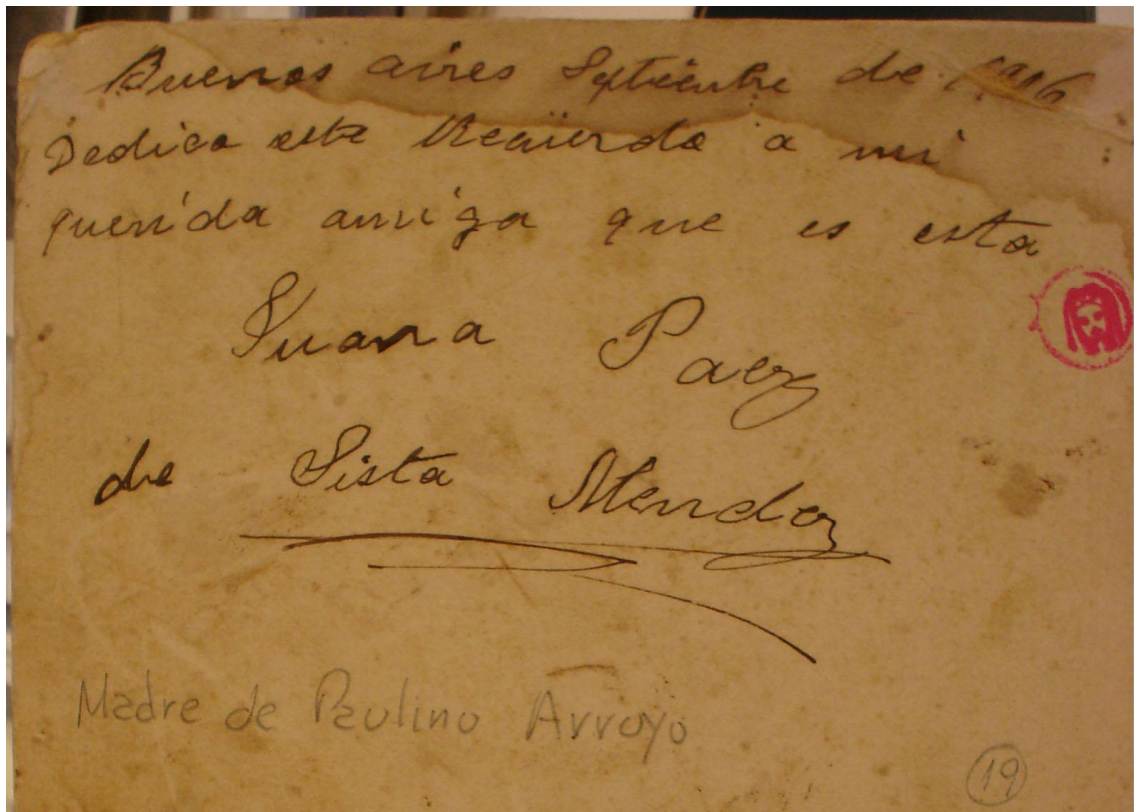 Buenos aires Septiembre de 1916
Dedico este Recüerdo a mi
querida amiga que es esta
Juana Paez
de Sista Mendoz
Madre de Paulino Arroyo
19